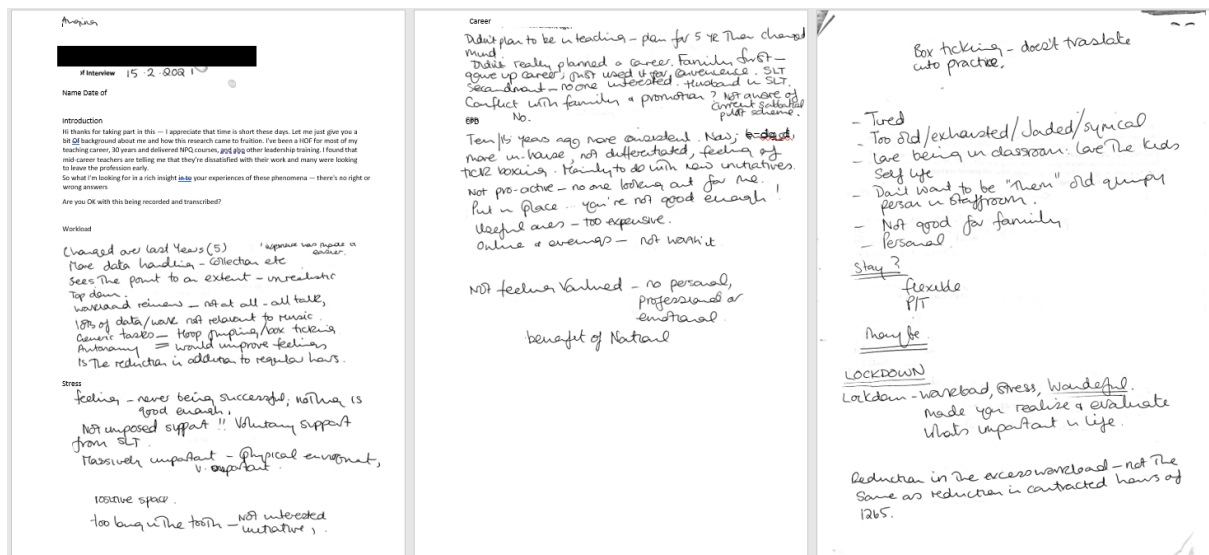 of Interview 15.2.2021
Name Date of
Introduction
Hi thanks for taking part in this — I appreciate that time is short these days. Let me just give you a
bit OI background about me and how this research came to fruition. I've been a HOF for most of my
teaching career, 30 years and delivered NPQ courses, and also other leadership training. I found that
mid-career teachers are telling me that they're dissatisfied with their work and many were looking
to leave the profession early.
So what I'm looking for in a rich insight in to your experiences of these phenomena — there's no right or
wrong answers
Are you OK with this being recorded and transcribed?
Workload
Changed over last years (5)
More data handling – collection etc
Sees the point to an extent – unrealistic
Top down.
workload review – not at all – all talk,
lots of data/work not relevant to music.
Generic tasks – Hoop jumping/box ticking
Autonomy = would improve feelings
Is the reduction in addition to regular hours.
Stress
feeling – never being successful, nothing is
good enough.
Not imposed support !! Voluntary support
from SLT.
Massively important – physical enviromnt,
v. important.
positive space.
too long in the tooth – Not interested
initiative,
Career
Didn't plan to be in teaching – plan for 5 ye Then changed
mind.
Didn't really planned a career. Family first –
gave up career, just used it for convenience. SLT
Secondment – no one interested. Husband in SLT.
Conflict with family & promotion? Not aware of
No. current sabbatical
pilot scheme.
CPD
Ten/15 years ago more consistent. Now,
more in house, not differentiated, feeling of
tick boxing. Mainly to do with new initiatives.
Not pro-active – no one looking out for me.
Put in place ... you're not good enough!
Useful ones – too expensive.
Online & evenings – not worth it
Not feeling Valued – no personal,
professional or
emotional
benefit of
Box ticking – doesn't traslate
into practice.
– Tired
– Too old/exhausted/Jaded/synical
– Love being in classroom: love the kids
Self life
– Don't want to be "Them" old grumpy
person in staffroom.
– Not good for family
– Personal.
Stay?
flexible
P/T
Maybe.
LOCKDOWN
Lockdown – workload, stress, Wonderful.
made you realize & evaluate
whats important in life.
Reduction in the excess workload – not the
same as reduction in contracted hours of
1265.